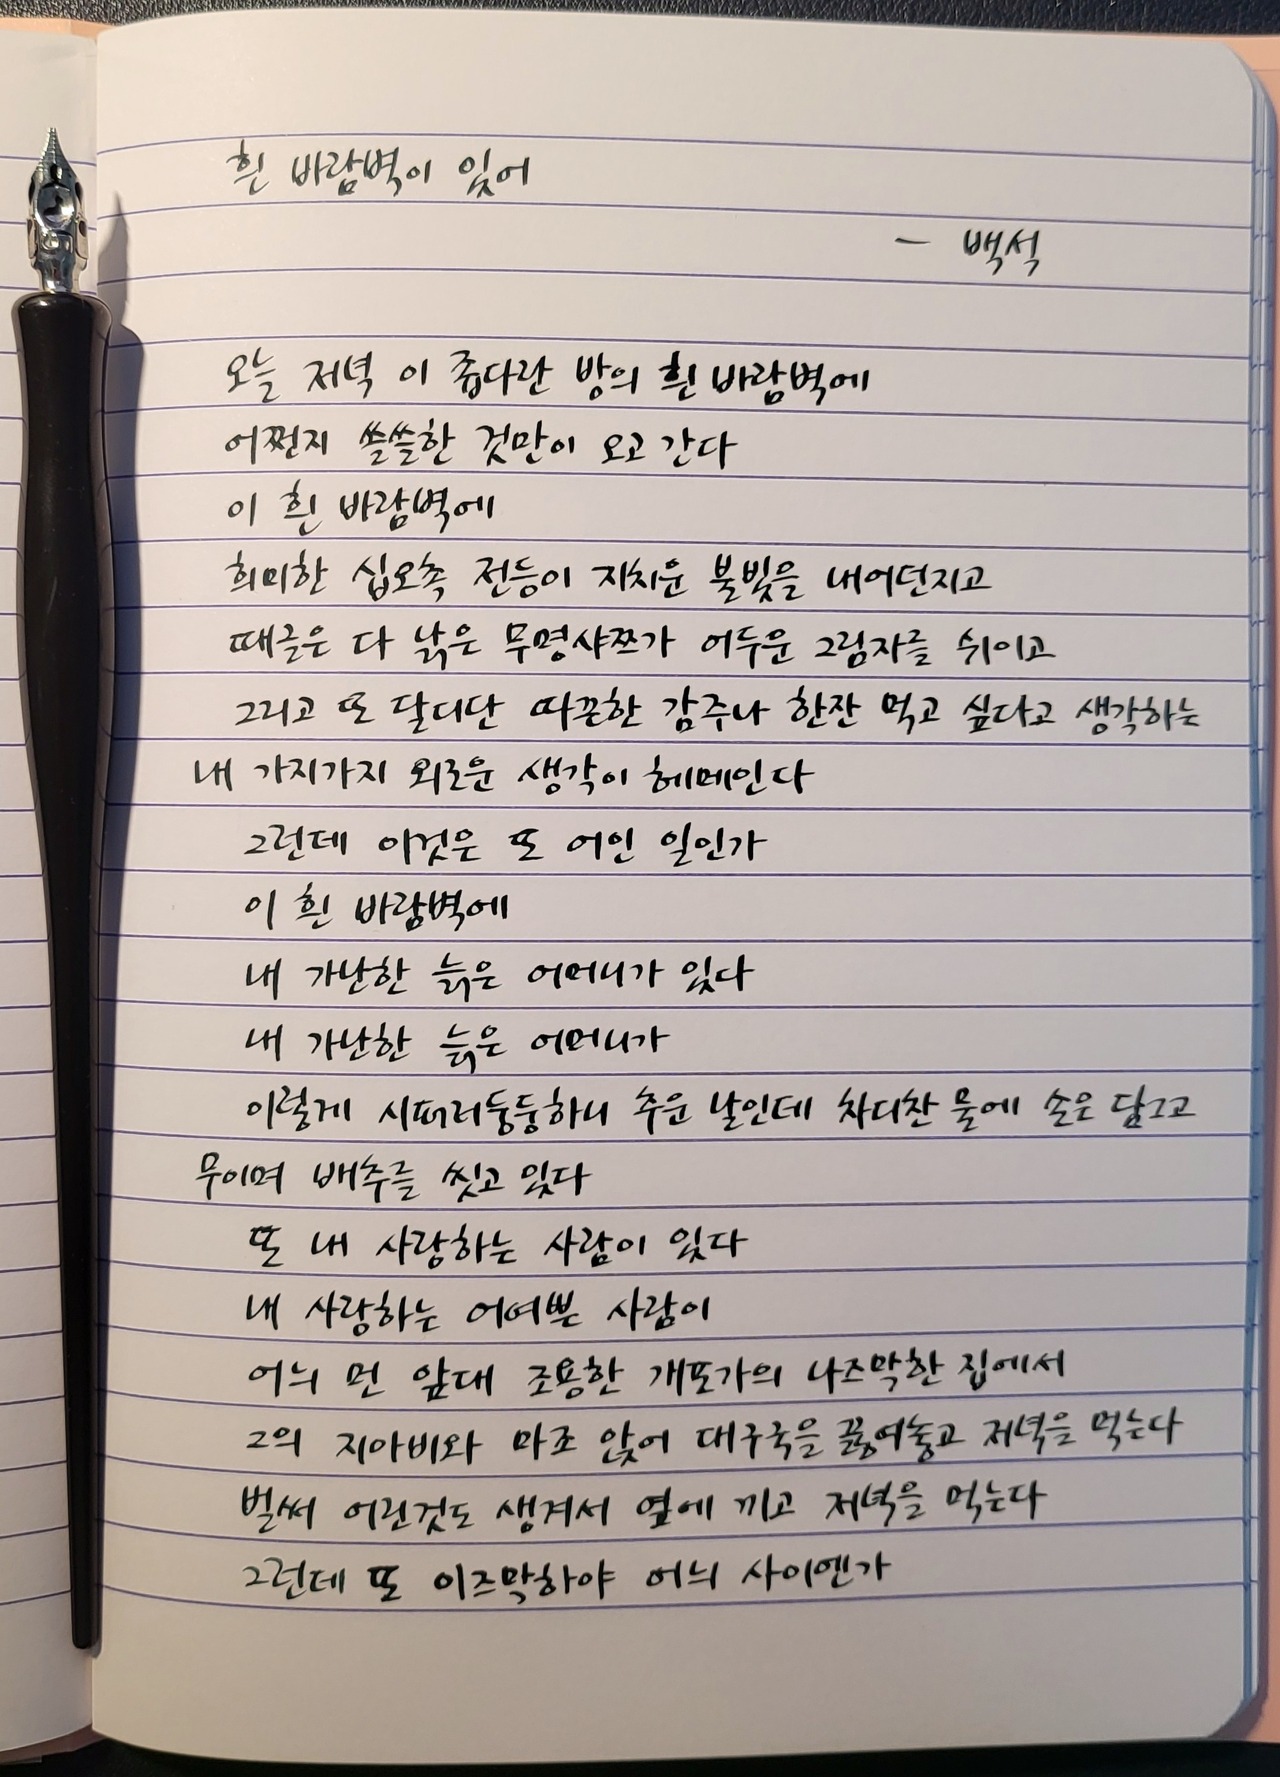 흰 바람벽이 있어
- 백석
오늘 저녁 이 좁다란 방의 흰 바람벽에
어쩐지 쓸쓸한 것만이 오고 간다
이 흰 바람벽에
희미한 십오촉 전등이 지치운 불빛을 내어던지고
때글은 다 낡은 무명샤쯔가 어두운 그림자를 쉬이고
그리고 또 달디단 따끈한 감주나 한잔 먹고 싶다고 생각하는
내 가지가지 외로운 생각이 헤메인다
그런데 이것은 또 어인 일인가
이 흰 바람벽에
내 가난한 늙은 어머니가 있다
내 가난한 늙은 어머니가
이렇게 시퍼러둥둥하니 추운 날인데 차디찬 물에 손은 담그고
무이며 배추를 씻고 있다
또 내 사랑하는 사람이 있다
내 사랑하는 어여쁜 사람이
어늬 먼 앞대 조용한 개포가의 나즈막한 집에서
그의 지아비와 마조 앉어 대구국을 끓여놓고 저녁을 먹는다
벌써 어린것도 생겨서 옆에 끼고 저녁을 먹는다
그런데 또 이즈막하야 어늬 사이엔가